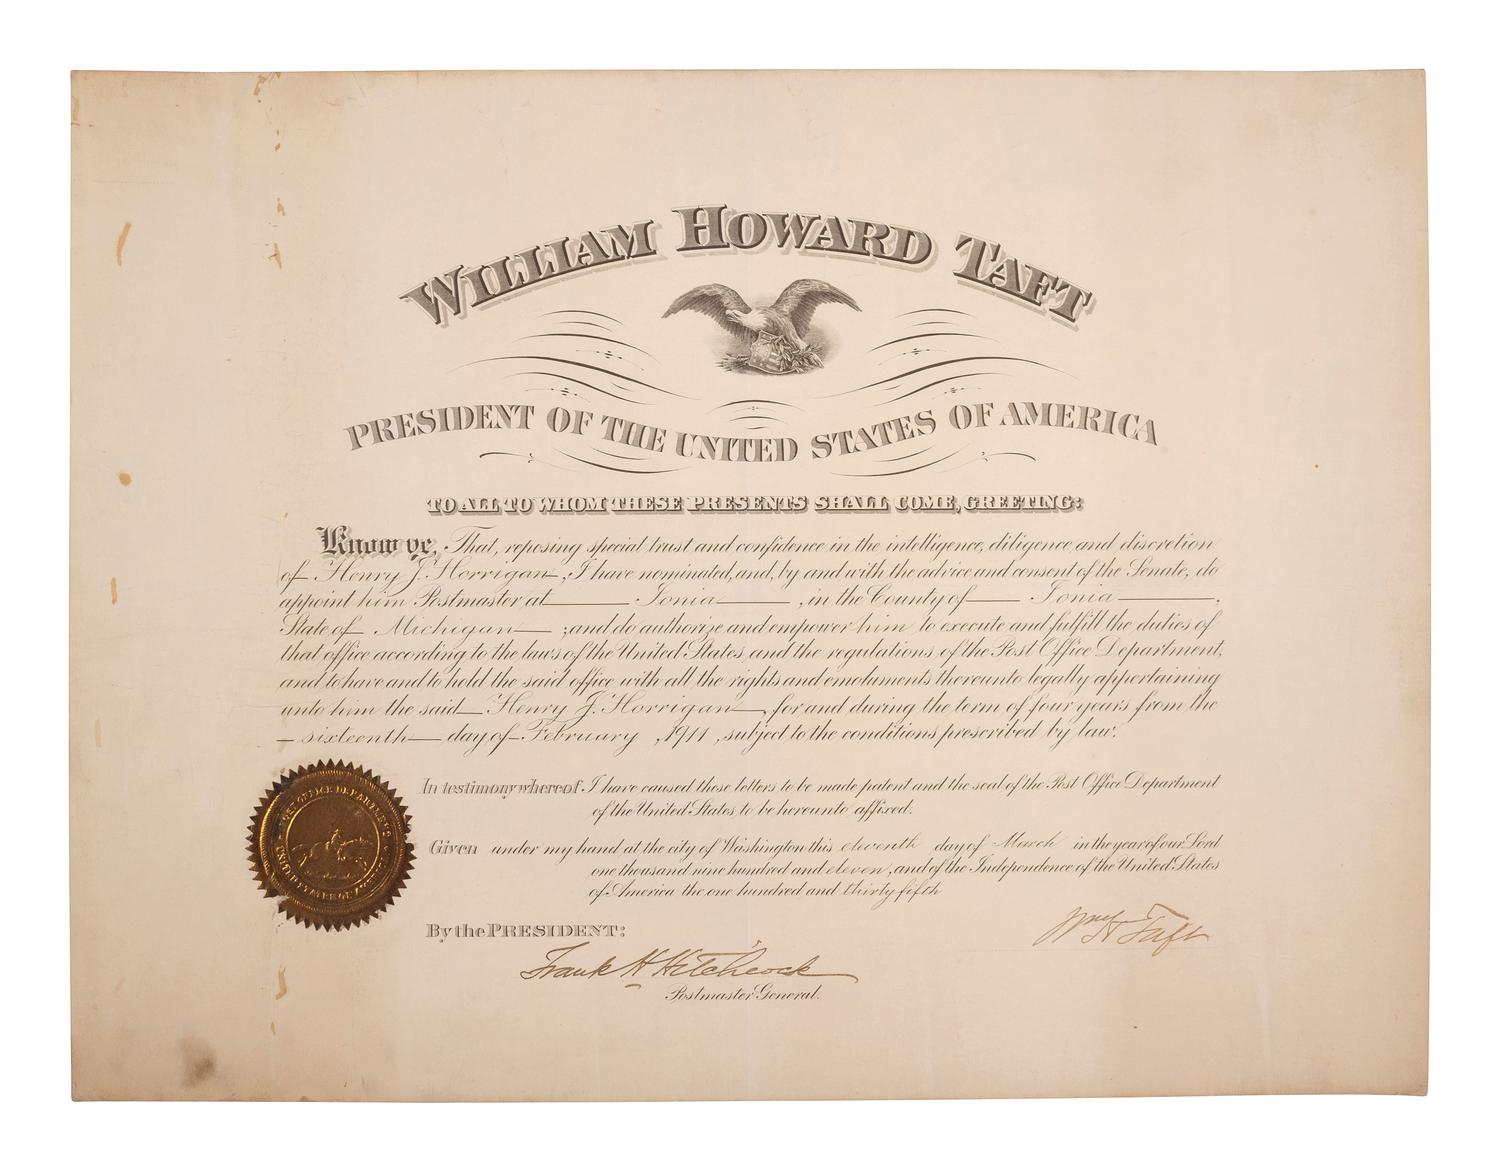 WILLIAM HOWARD TAFT
PRESIDENT OF THE UNITED STATES OF AMERICA
TO ALL TO WHOM THESE PRESENTS SHALL COME, GREETING:
Know ye, That, reposing special trust and confidence in the intelligence, diligence and discretion
of Henry J. Horrigan, I have nominated, and, by and with the advice and consent of the Senate, do
appoint him Postmaster at Ionia, in the County of Ionia,
State of Michigan; and do authorize and empower him to execute and fulfill the duties of
that office according to the laws of the United States and the regulations of the Post Office Department,
and to have and to hold the said office with all the rights and emoluments thereunto legally appertaining
unto him the said Henry J. Horrigan, for and during the term of four years from the
sixteenth day of February, 1911, subject to the conditions prescribed by law.
In testimony whereof I have caused these letters to be made patent and the seal of the Post Office Department
of the United States to be hereunto affixed.
Given under my hand at the city of Washington this eleventh day of March in the year of our Lord
one thousand nine hundred and eleven, and of the Independence of the United States
of America the one hundred and thirty-fifth
POST OFFICE DEPARTMENT
UNITED STATES OF AMERICA
By the PRESIDENT:
Wm H Taft
Frank H Hitchcock
Postmaster General.